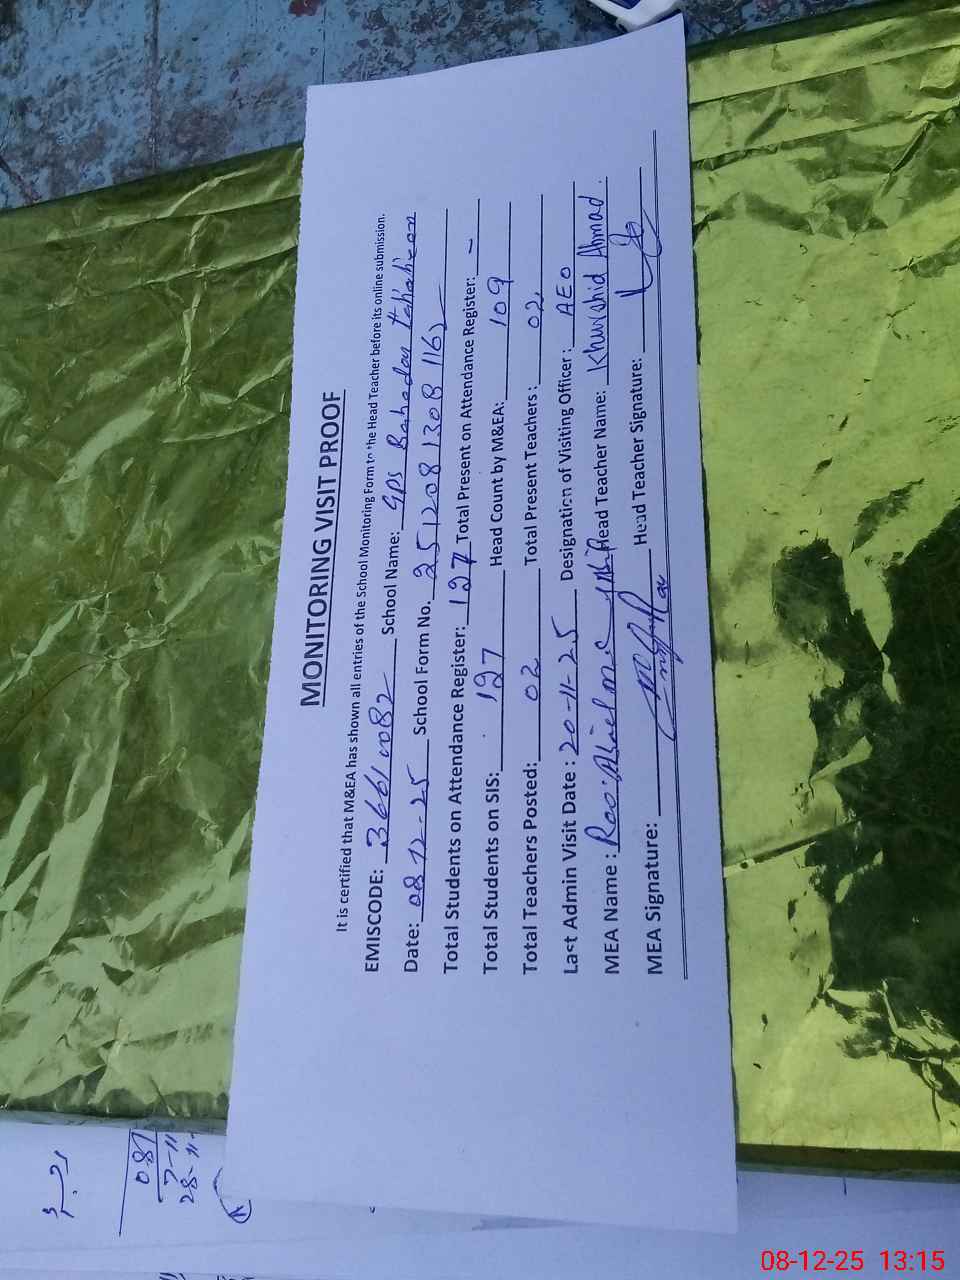 MONITORING VISIT PROOF
It is certified that M&EA has shown all entries of the School Monitoring Form to the Head Teacher before its online submission.
EMISCODE: 36610082 School Name: GPS Bahadar
Date: 08-12-25 School Form No. 25120813081162
Total Students on Attendance Register: 127 Total Present on Attendance Register: -
Total Students on SIS: 127 Head Count by M&EA: 109
Total Teachers Posted: 02 Total Present Teachers: 02
Last Admin Visit Date: 20-11-25 Designation of Visiting Officer: AEO
MEA Name: Rao Head Teacher Name: Khurshid Ahmad.
MEA Signature: Head Teacher Signature:
081
7-11
28-11-
08-12-25 13:15